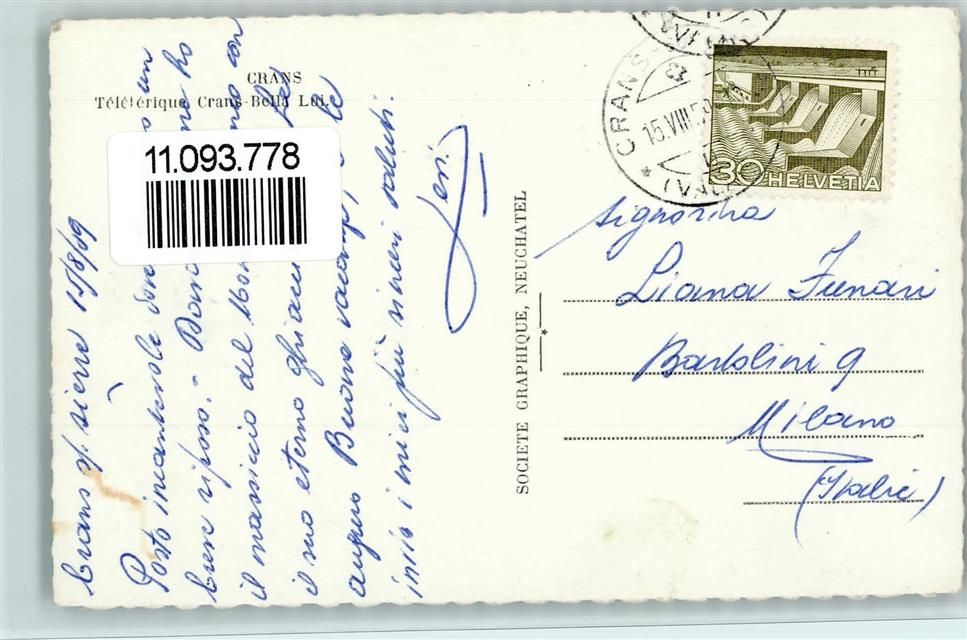 CRANS
Téléférique Crans-Bella Lui.
11.093.778
Crans s/ Sierre 15/8/59
Posto incantevole un
breve riposo. - ho
il massiccio del con
il suo eterno
auguro Buone vacanze,
invio i miei più sinceri saluti.
SOCIETE GRAPHIQUE, NEUCHATEL
CRANS
15.VIII.59
30 HELVETIA
Signorina
Liana Funari
Bartolini 9
Milano
(Italie)